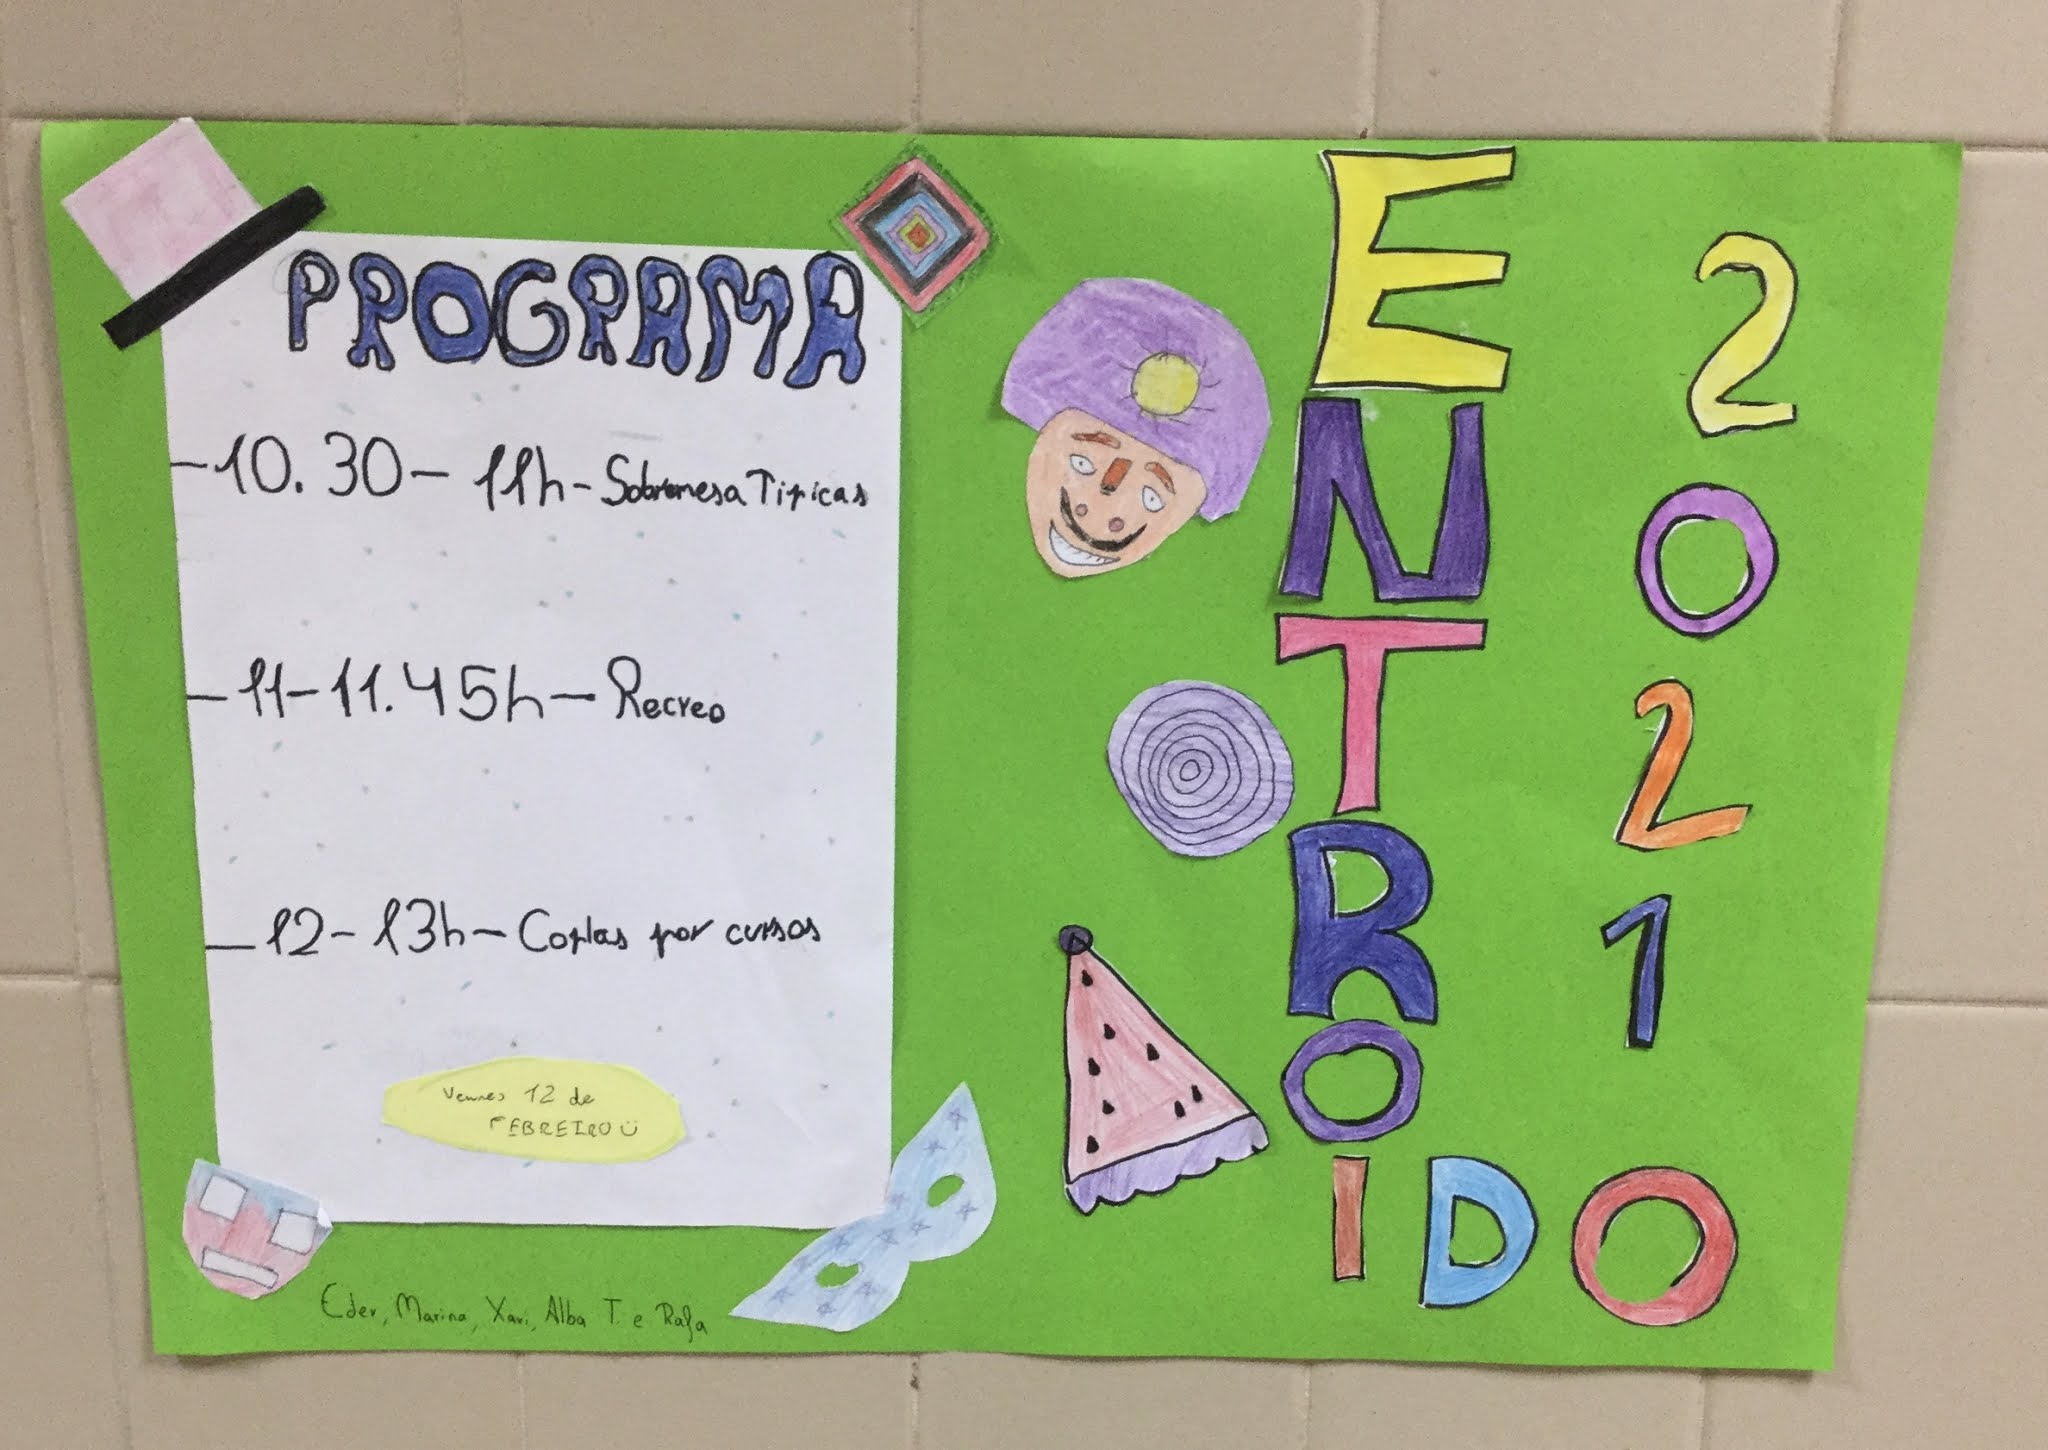 PROGRAMA
-10.30- 11h- Sobremesa Tipicas
-11-11.45h- Recreo
-12-13h- Coplas por cursos
Venres 12 de
FEBREIRO
Eder, Marina, Xavi, Alba T. e Rafa
ENTROIDO
2021